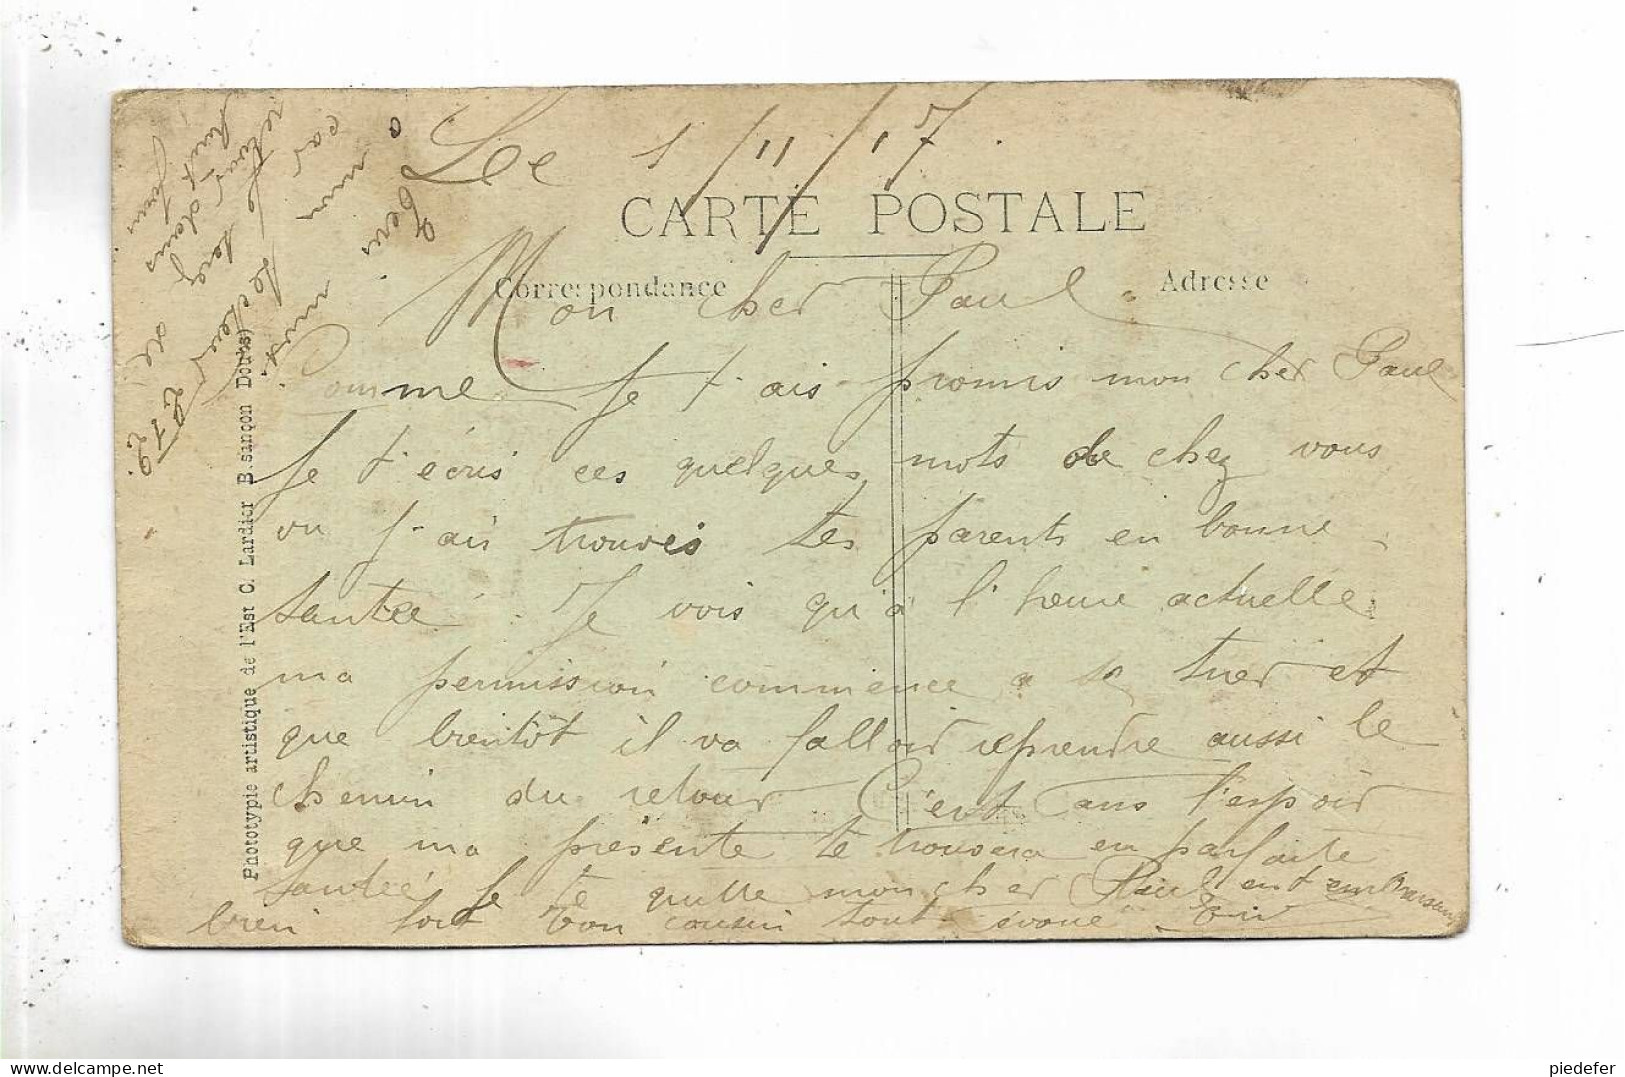 Le 1/11/17.
CARTE POSTALE
Correspondance
Adresse
Mon cher Paul
Comme Je t'ais promis mon cher Paul
Je t'écris ces quelques mots de chez vous
ou j'ais trouvés tes parents en bonne
santée. Je vois qu'à l'heure actuelle
ma permission commence a se tirer et
que bientôt il va falloir reprendre aussi le
chemin du retour C'est dans l'espoir
que ma présente te trouvera en parfaite
santée Je te quitte mon cher Paul en t'embrassant
bien fort Ton cousin tout dévoué
car a mon
retour
huit jours
Phototypie artistique de l'Est C. Lardier Besançon Doubs)
piedefer